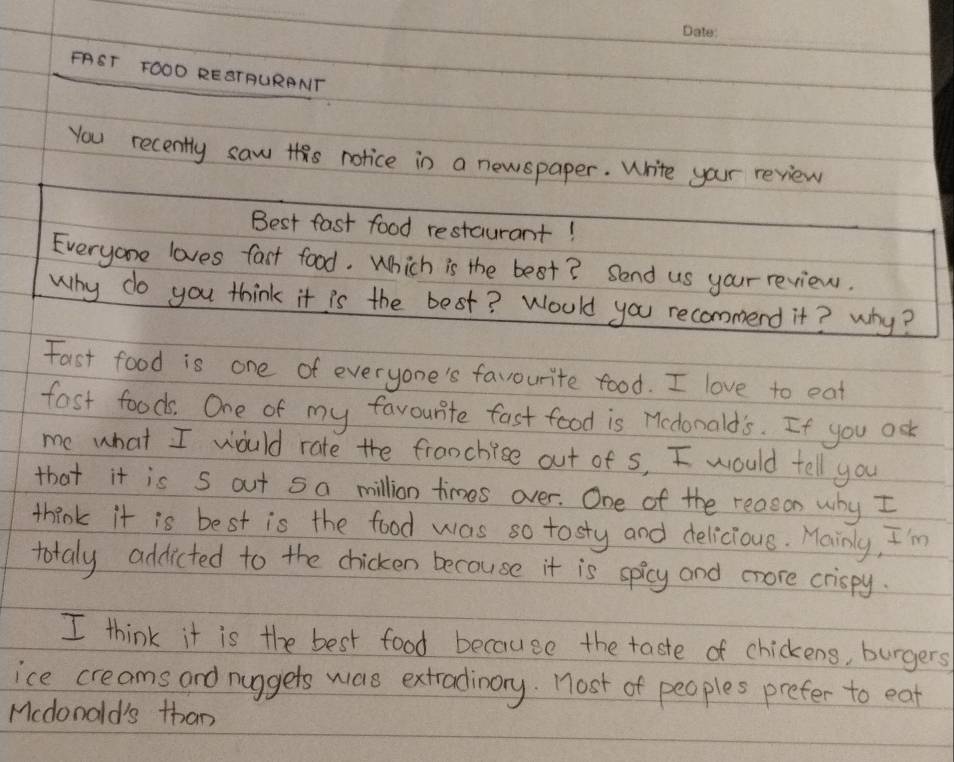 Date:
FAST FOOD RESTAURANT
You recently saw this notice in a newspaper. Write your review
Best fast food restaurant!
Everyone loves fast food. Which is the best? Send us your review.
Why do you think it is the best? Would you recommend it? why?
Fast food is one of everyone's favourite food. I love to eat
fast foods. One of my favourite fast food is Mcdonald's. If you ask
me what I would rate the franchise out of 5, I would tell you
that it is 5 out 5 a million times over. One of the reason why I
think it is best is the food was so tasty and delicious. Mainly, I'm
totaly addicted to the chicken because it is spicy and more crispy.
I think it is the best food because the taste of chickens, burgers
ice creams and nuggets was extradinary. Most of peoples prefer to eat
Mcdonald's than